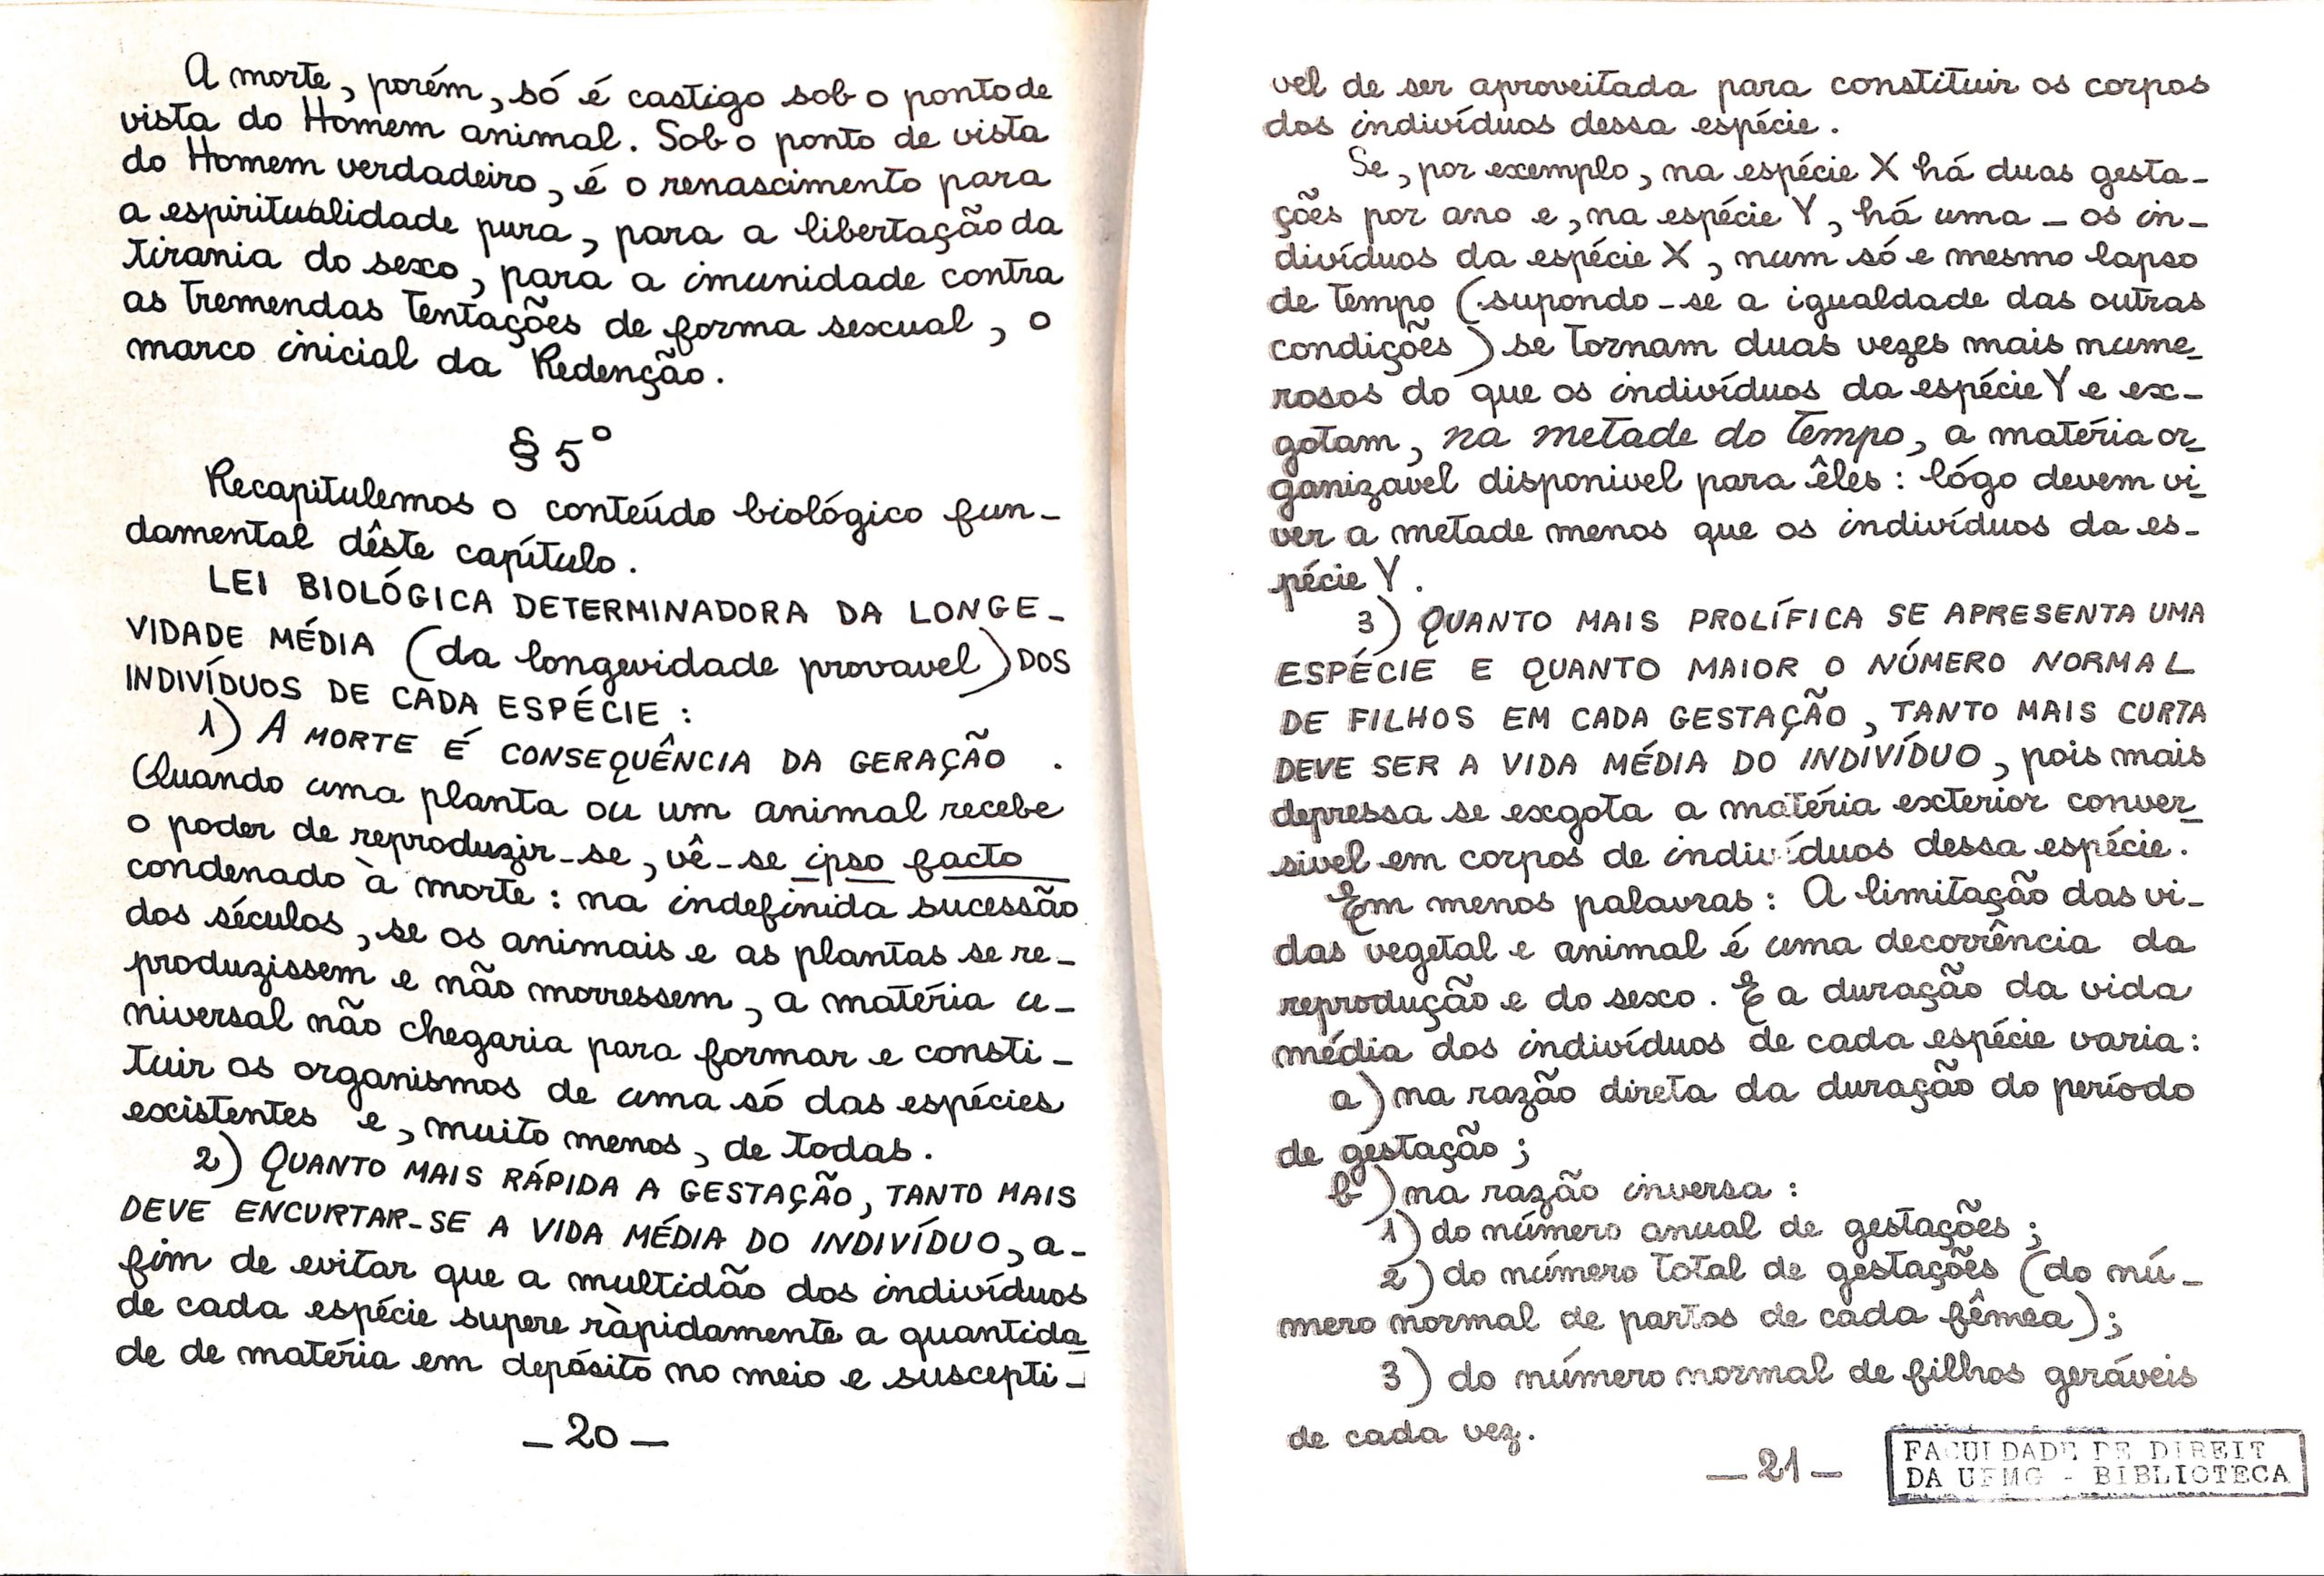 A morte, porém, só é castigo sob o ponto de
vista do Homem animal. Sob o ponto de vista
do Homem verdadeiro, é o renascimento para
a espiritualidade pura, para a libertação da
tirania do sexo, para a imunidade contra
as tremendas tentações de forma sexual, o
marco inicial da Redenção.
§ 5º
Recapitulemos o conteúdo biológico fun-
damental dêste capítulo.
LEI BIOLÓGICA DETERMINADORA DA LONGE-
VIDADE MÉDIA (da longevidade provavel) DOS
INDIVÍDUOS DE CADA ESPÉCIE :
1) A MORTE É CONSEQUÊNCIA DA GERAÇÃO .
Quando uma planta ou um animal recebe
o poder de reproduzir-se, vê-se ipso facto
condenado à morte : na indefinida sucessão
dos séculos, se os animais e as plantas se re-
produzissem e não morressem, a matéria u-
niversal não chegaria para formar e consti-
tuir os organismos de uma só das espécies
existentes e, muito menos, de todas.
2) QUANTO MAIS RÁPIDA A GESTAÇÃO, TANTO MAIS
DEVE ENCURTAR-SE A VIDA MÉDIA DO INDIVÍDUO, a-
fim de evitar que a multidão dos indivíduos
de cada espécie supere ràpidamente a quantida
de de matéria em depósito no meio e suscepti-
— 20 —
vel de ser aproveitada para constituir os corpos
dos indivíduos dessa espécie.
Se, por exemplo, na espécie X há duas gesta-
ções por ano e, na espécie Y, há uma - os in-
divíduos da espécie X, num só e mesmo lapso
de tempo (supondo-se a igualdade das outras
condições) se tornam duas vezes mais nume-
rosos do que os indivíduos da espécie Y e ex-
gotam, na metade do tempo, a matéria or-
ganizavel disponivel para êles : lógo devem vi-
ver a metade menos que os indivíduos da es-
pécie Y.
3) QUANTO MAIS PROLÍFICA SE APRESENTA UMA
ESPÉCIE E QUANTO MAIOR O NÚMERO NORMAL
DE FILHOS EM CADA GESTAÇÃO, TANTO MAIS CURTA
DEVE SER A VIDA MÉDIA DO INDIVÍDUO, pois mais
depressa se exgota a matéria exterior conver-
sivel em corpos de indivíduos dessa espécie.
Em menos palavras : A limitação das vi-
das vegetal e animal é uma decorrência da
reprodução e do sexo. E a duração da vida
média dos indivíduos de cada espécie varia :
a) na razão direta da duração do período
de gestação ;
b) na razão inversa :
1) do número anual de gestações ;
2) do número total de gestações (do nú-
mero normal de partos de cada fêmea) ;
3) do número normal de filhos geráveis
de cada vez.
— 21 —
FACULDADE DE DIREIT
DA UFMG - BIBLIOTECA